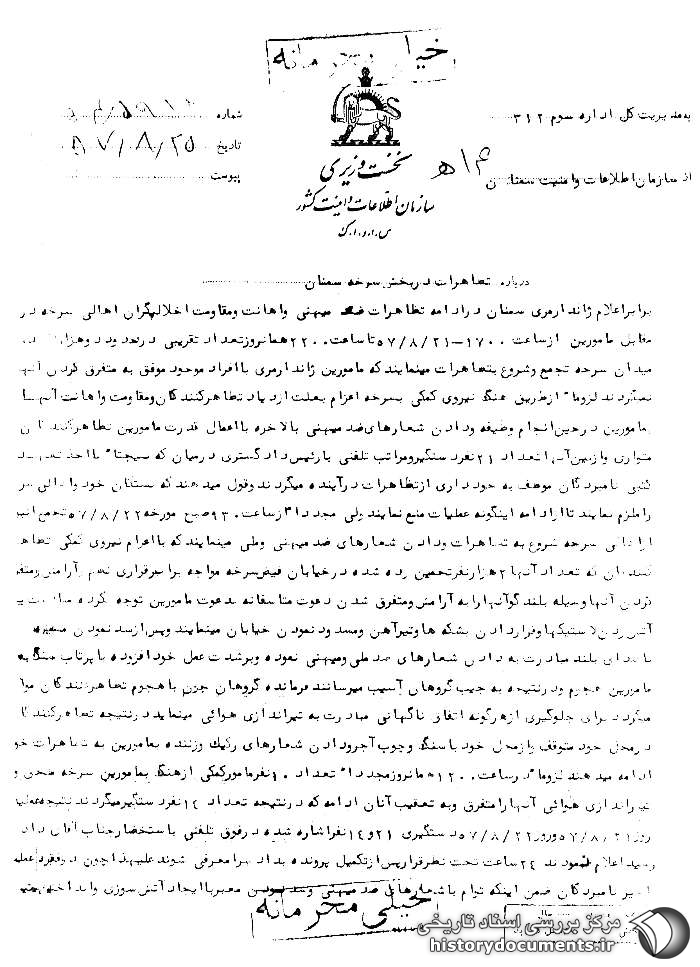 خیلی محرمانه
به مدیریت کل اداره سوم ۳۱۲
شماره
تاریخ ۵۷/۸/۲۵
پیوست
از سازمان اطلاعات و امنیت سمنان ۱۴ ه
نخست وزیری
سازمان اطلاعات و امنیت کشور
س.ا.و.ا.ک
درباره تظاهرات در بخش سرخه سمنان
برابر اعلام ژاندارمری سمنان در ادامه تظاهرات ضد میهنی و اهانت و مقاومت اخلالگران اهالی سرخه در
مقابل مامورین از ساعت ۱۷۰۰-۵۷/۸/۲۱ تا ساعت ۲۲۰۰ همانروز تعداد تقریبی در حدود دو هزار
میدان سرخه تجمع و شروع بتظاهرات مینمایند که مامورین ژاندارمری با افراد موجود موفق به متفرق کردن آنها
نمیگردند لزوما" از طریق هنگ نیروی کمکی بسرخه اعزام بعلت ازدیاد تظاهرکنندگان و مقاومت و اهانت آنها
بمامورین در حین انجام وظیفه و دادن شعارهای ضد میهنی بالاخره با اعمال قدرت مامورین تظاهرکنندگان
متواری و از بین آنها تعداد ۲۱ نفر دستگیر و مراتب تلفنی با رئیس دادگستری در میان که نتیجتا" با اخذ تعهد
کتبی نامبردگان موظف به خودداری از تظاهرات در آینده میگردند و قول میدهند که بستگان خود و اهالی
را ملزم نمایند تا از ادامه اینگونه عملیات منع نمایند ولی مجددا از ساعت ۰۹۳۰ صبح مورخه ۵۷/۸/۲۲ تجمع
از اهالی سرخه شروع به تظاهرات و دادن شعارهای ضد میهنی و ملی مینمایند که با اعزام نیروی کمکی
کنندگان که تعداد آنها ۲ هزار نفر تخمین زده شده در خیابان فیض سرخه مواجه برابر برقراری نظم و آرامش و متفرق
کردن آنها وسیله بلندگو آنها را به آرامش و متفرق شدن دعوت متاسفانه بدعوت مامورین توجه نکرده
آتش زدن لاستیکها و قرار دادن بشکه ها و تیرآهن و مسدود نمودن خیابان مینمایند و پس از سد نمودن
با صدای بلند مبادرت به دادن شعارهای ضد ملی و میهنی نموده و بر شدت عمل خود افزوده با پرتاب سنگ به
مامورین هجوم و در نتیجه به جیپ گروهان آسیب میرسانند فرمانده گروهان چون با هجوم تظاهرکنندگان
میگردد برای جلوگیری از هرگونه اتفاق ناگهانی مبادرت به تیراندازی هوائی مینماید در نتیجه تظاهرکنندگان
در محل خود متوقف و از محل خود با سنگ و چوب آجر و دادن شعارهای رکیک و زننده بمامورین به تظاهرات خود
ادامه میدهند لزوما" در ساعت ۱۲۰۰ همانروز مجددا" تعداد ۱۰ نفر مامور کمکی از هنگ بمامورین سرخه ملحق و
تیراندازی هوائی آنها را متفرق و به تعقیب آنان ادامه که در نتیجه تعداد ۱۴ نفر دستگیر میگردند
روز ۵۷/۸/۲۱ و روز ۵۷/۸/۲۲ دستگیری ۲۱ و ۱۴ نفر اشاره شده در فوق تلفنی باستحضار جناب آقای
رسید اعلام نمودند ۲۴ ساعت تحت نظر قرار پس از تکمیل پرونده بدادسرا معرفی شوند علیهذا چون در وقفه
اخیر نامبردگان ضمن اینکه توام با شعارهای ضد میهنی و مسدود نمودن معبر با ایجاد آتش سوزی و
خیلی محرمانه
مرکز بررسی اسناد تاریخی
historydocuments.ir